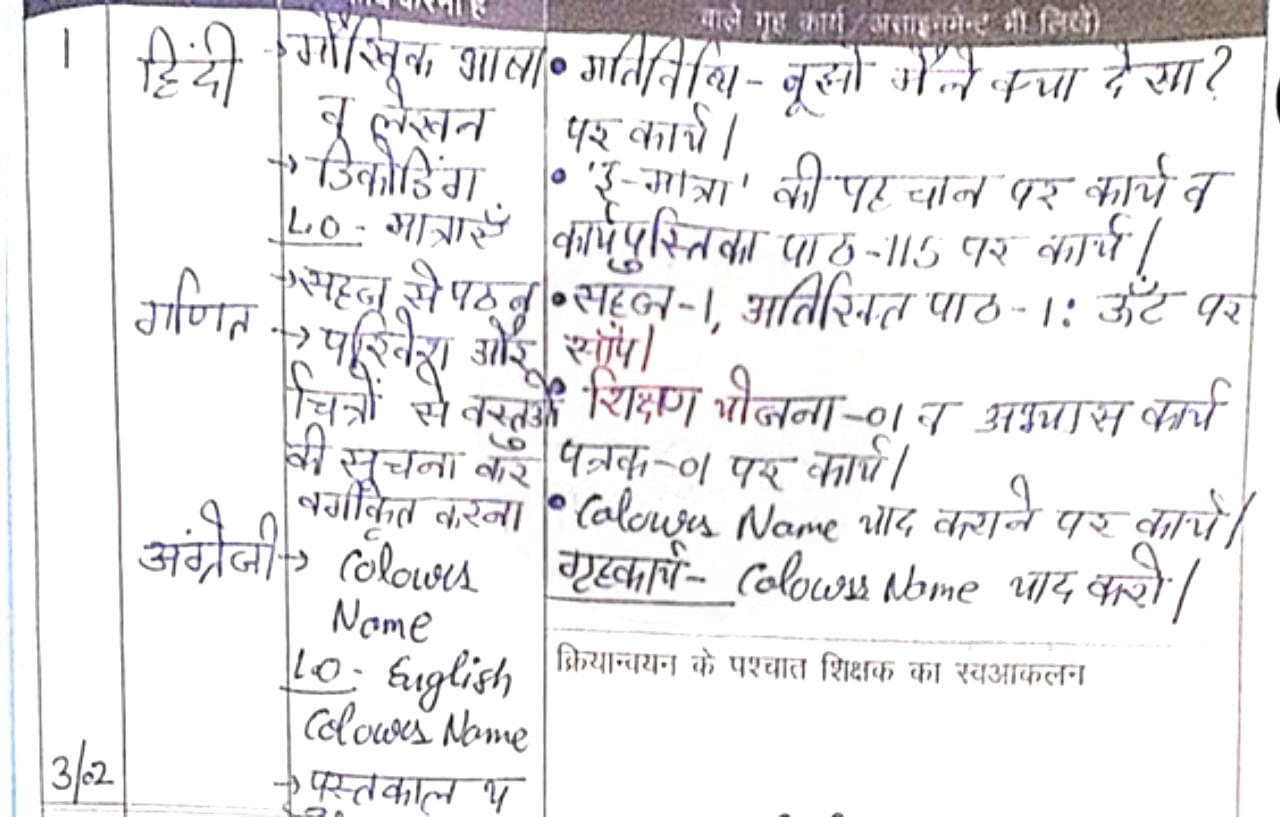 करना है
वाले गृह कार्य/असाइनमेन्ट भी लिखें)
1
हिंदी
→ मौखिक भाषा
व लेखन
→ डिकोडिंग
L.O - मात्राएँ
→ सहज से पठन
गणित
→ परिवेश और
चित्रों से वस्तुओं
की सूचना कर
वर्गीकृत करना
अंग्रेजी
→ Colours
Name
L.O - English
Colours Name
3/02
→ पुस्तकालय
• गतिविधि - बूझो मैंने क्या देखा?
पर कार्य।
• 'ई-मात्रा' की पहचान पर कार्य व
कार्यपुस्तिका पाठ-115 पर कार्य।
• सहज-1, अतिरिक्त पाठ-1: ऊँट पर
सांप।
• शिक्षण योजना-01 व अभ्यास कार्य
पत्रक-01 पर कार्य।
• Colours Name याद कराने पर कार्य।
गृहकार्य- Colours Name याद करो।
क्रियान्वयन के पश्चात शिक्षक का स्वआकलन